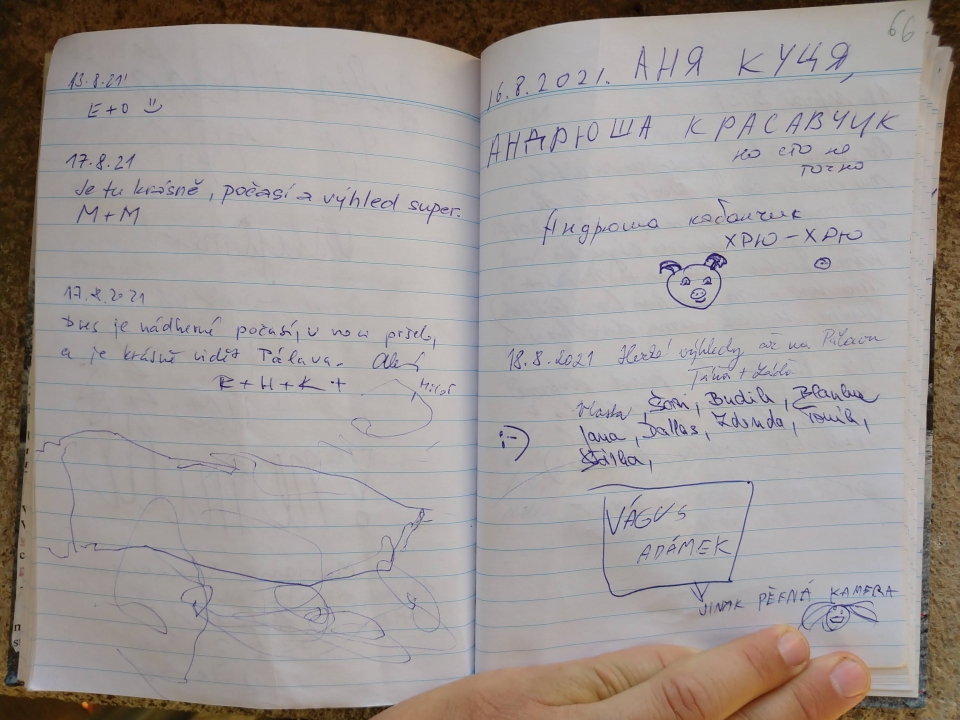 13.8.21
E+O
17.8.21
Je tu krásně, počasí a výhled super.
M+M
17.8.2021
Dnes je nádherné počasí, v noci pršelo,
a je krásně vidět Pálava.
R + H + K +
66
16.8.2021. АНЯ КУЦЯ,
АНДРЮША КРАСАВЧИК
но сто не
точно
Андрюша кабанчик
ХРЮ-ХРЮ
18.8.2021 Hezké výhledy až na Pálavu
Vlasta, Budik, Blanka
Jana, Dallas, Zdenda, Tomík,
:-)
VÁGUS
ADÁMEK
JINAK PĚKNÁ KAMERA